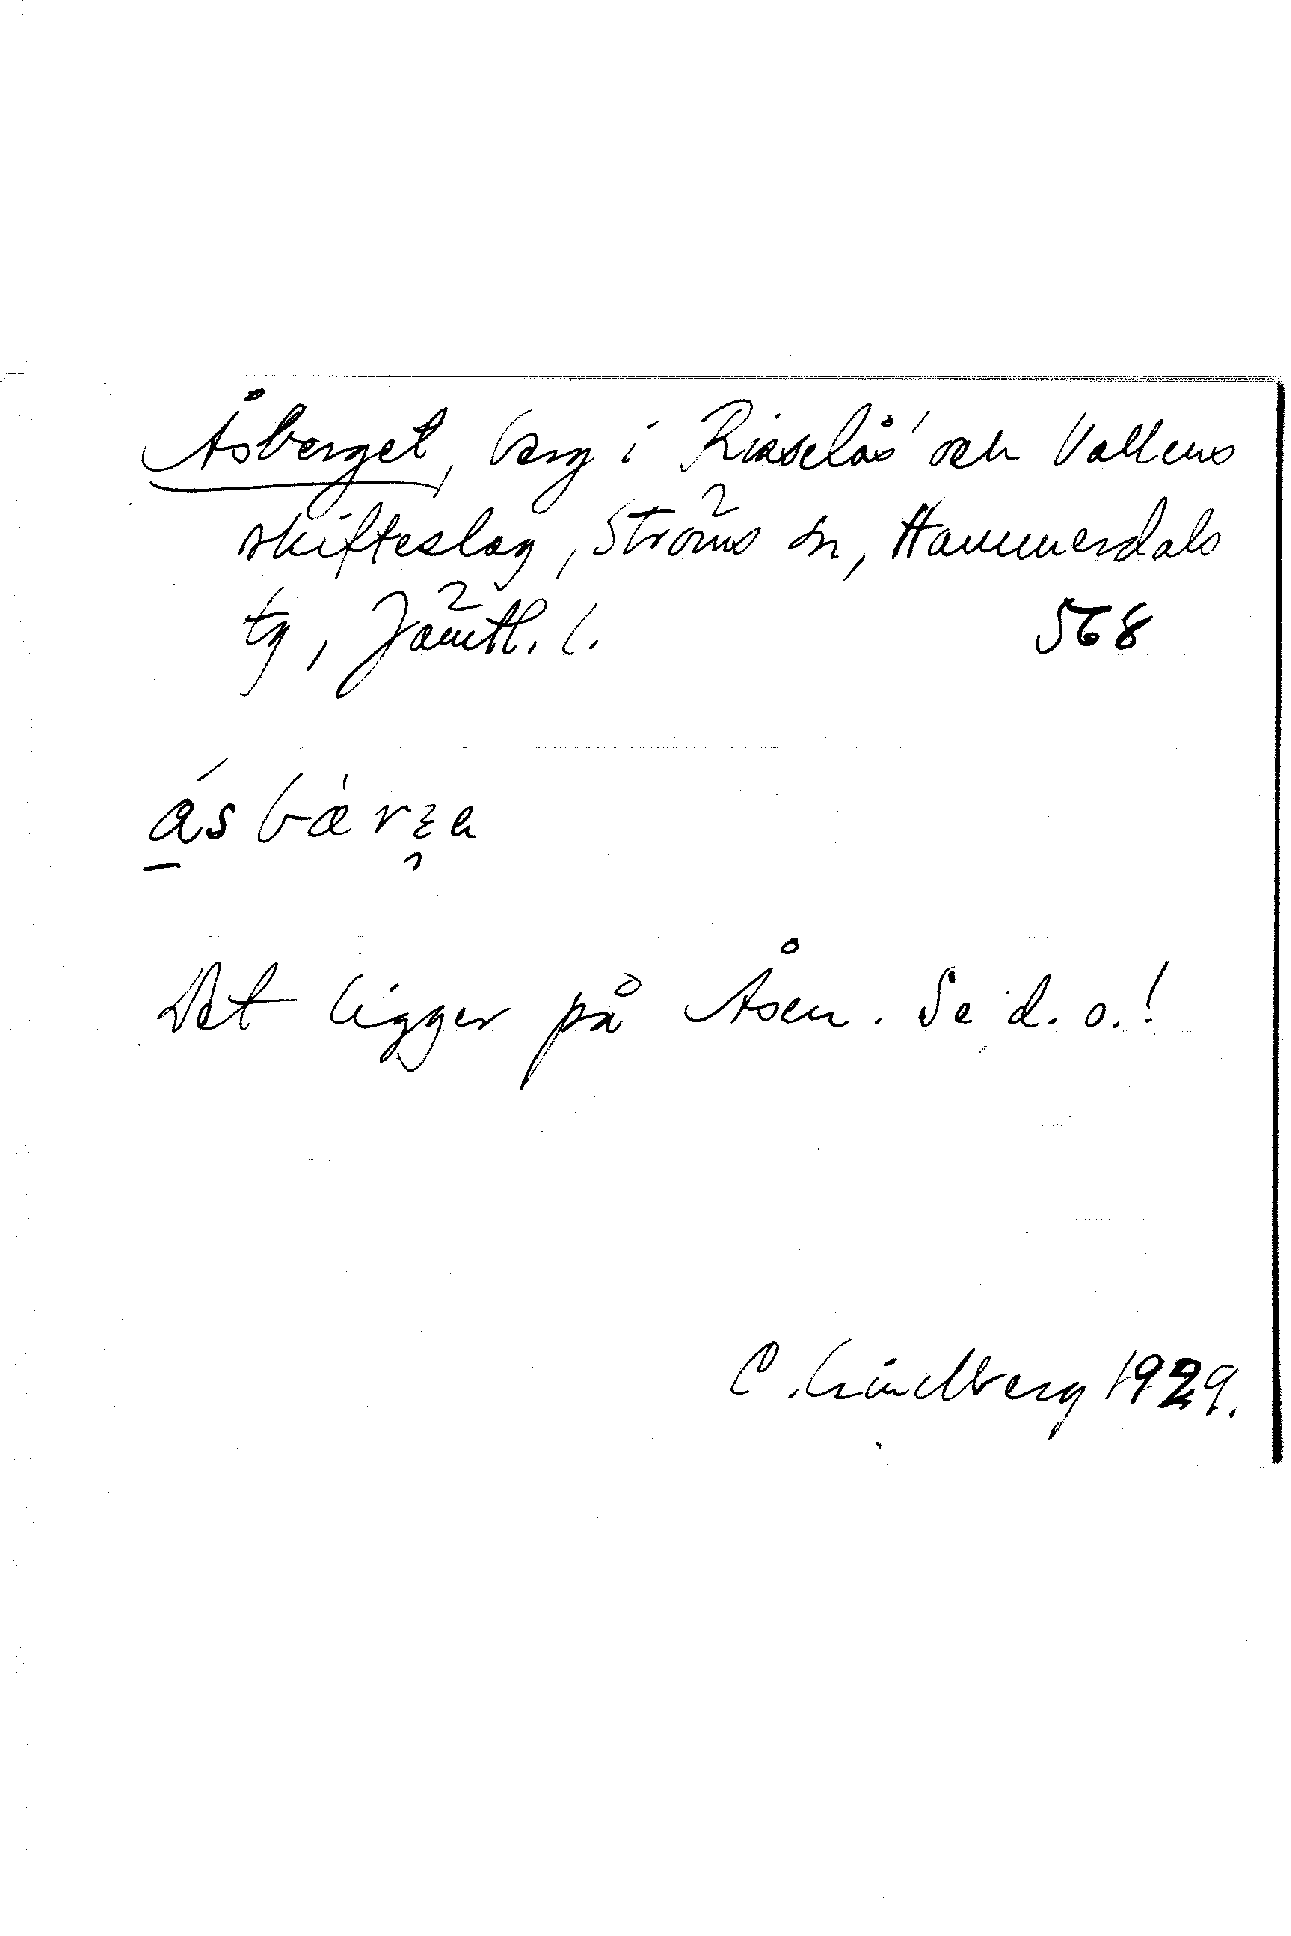 Åsberget, berg i Risselås' och Vallens
skifteslag, Ströms sn, Hammerdals
tg, Jämtl. l. 568
ásbæ̀rʒa
Det ligger på Åsen. Se d. o.!
C. Lindberg 1929.